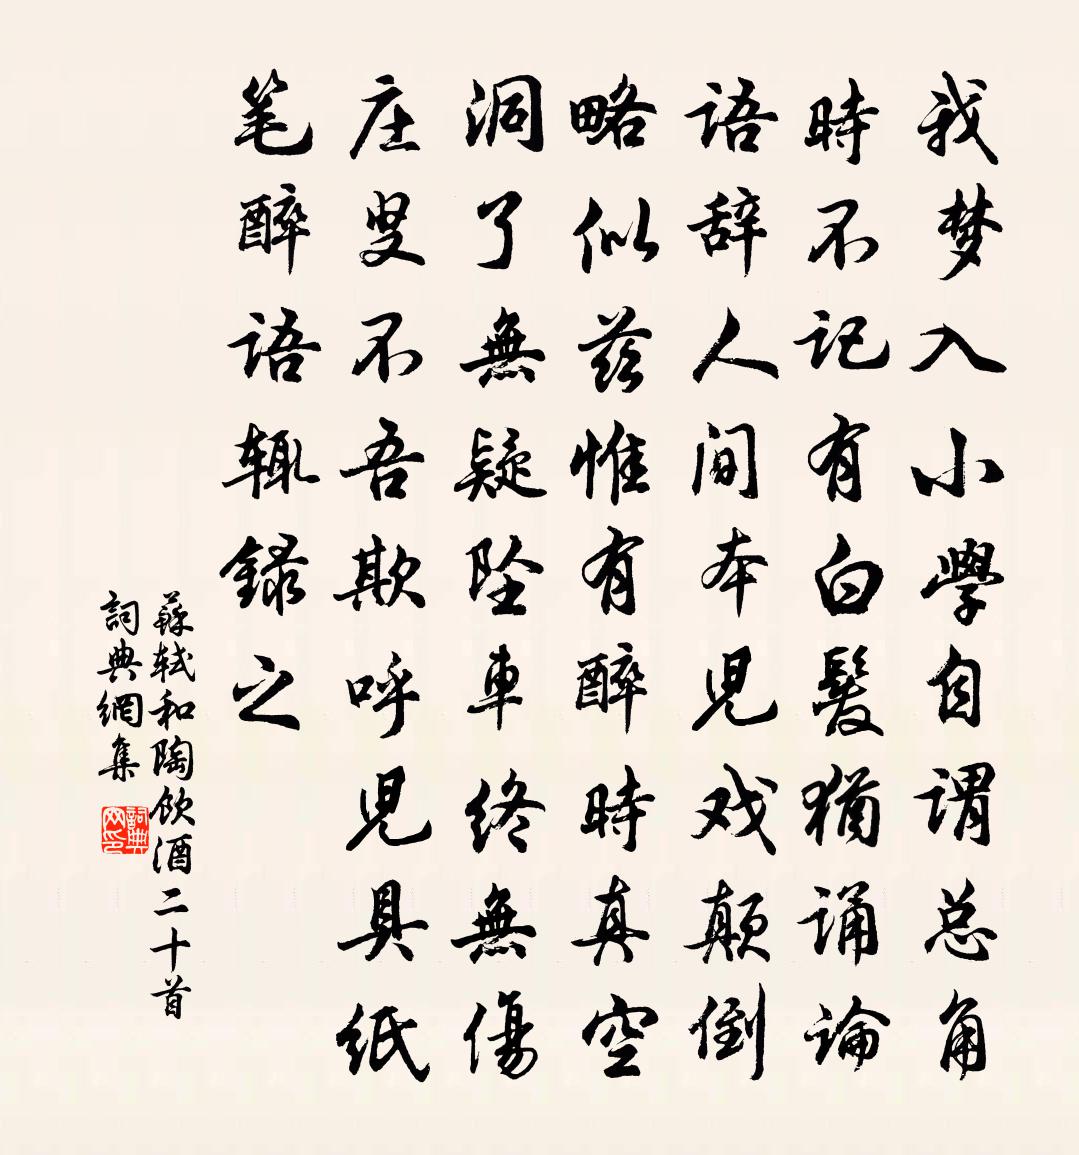 我梦入小學自谓总角
時不记有白髮猶诵論
语辞人间本児戏颠倒
略似兹惟有醉時真空
洞了無疑坠車终無傷
庄叟不吾欺呼児具纸
笔醉语辄録之
蘇轼和陶飲酒二十首
詞典網集
詞典网印